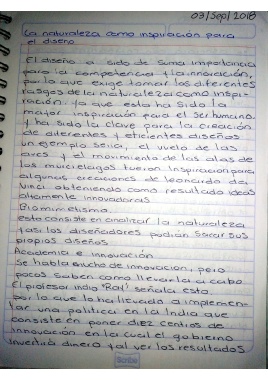 03/Sep/2018
La naturaleza como inspiración para
el diseño
El diseño a sido de suma importancia
para la competencia y la innovación,
por lo que exige tomar los diferentes
rasgos de la naturaleza como inspi-
ración. ya que esta ha sido la
mayor inspiración para el ser humano.
y ha sido la clave para la creación
de diferentes y eficientes diseños
un ejemplo sería, el vuelo de las
aves y el movimiento de las alas de
los murcielagos fueron inspiración para
algunas creaciones de leonardo da
vinci obteniendo como resultado ideas
altamente innovadoras
Biomimetismo
esta consiste en analizar la naturaleza
y así los diseñadores podrán sacar sus
propios diseños
Academia e innovación
Se habla mucho de innovación, pero
pocos saben como llevarla a cabo
El profesor indio "Raj" señala esto
por lo que lo ha llevado a implemen-
tar una política en la India que
consiste en poner diez centros de
innovación en la cual el gobierno
invertirá dinero y al ver los resultados
Scribe